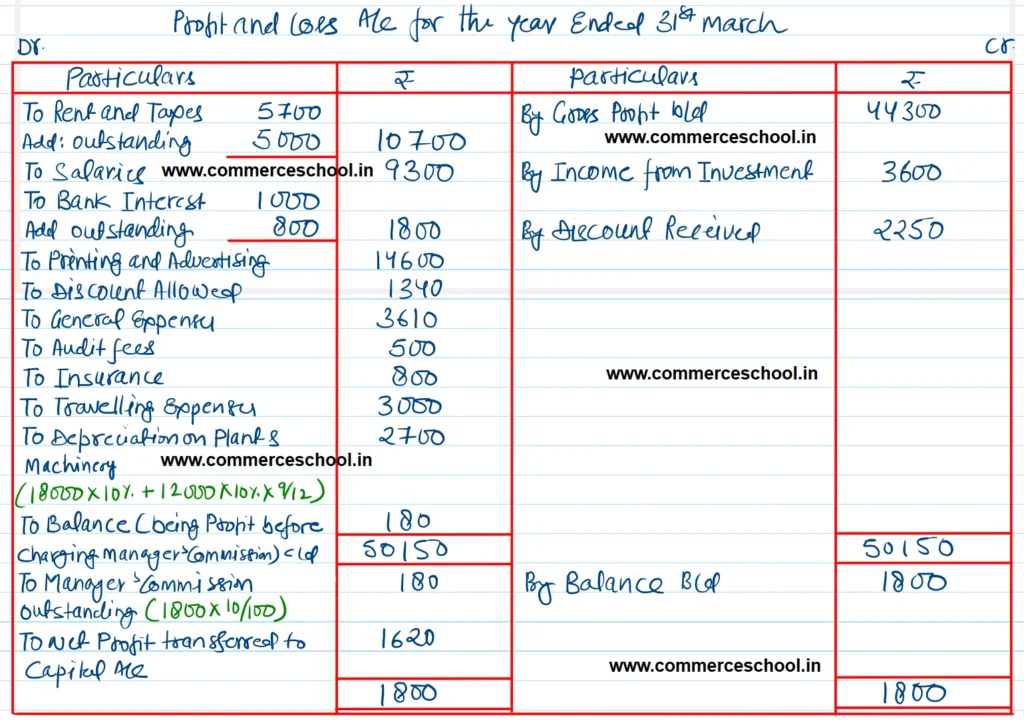 Profit and Loss A/c for the year Ended 31st March
Dr. Cr.
Particulars ₹ Particulars ₹
To Rent and Taxes 5700 By Gross Profit b/d 44300
Add: outstanding 5000 10700 www.commerceschool.in
To Salaries www.commerceschool.in 9300 By Income from Investment 3600
To Bank Interest 1000
Add outstanding 800 1800 By Discount Received 2250
To Printing and Advertising 14600
To Discount Allowed 1340
To General Expenses 3610
To Audit fees 500
To Insurance 800 www.commerceschool.in
To Travelling Expenses 3000
To Depreciation on Plant & 2700
Machinery www.commerceschool.in
(18000 x 10% + 12000 x 10% x 9/12)
To Balance (being Profit before 180
Charging Manager's Commission) c/d 50150 50150
To Manager's Commission 180 By Balance B/d 1800
outstanding (1800 x 10/100)
To Net Profit transferred to 1620
Capital A/c www.commerceschool.in
1800 1800